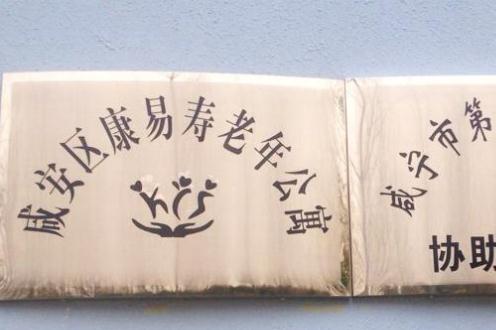 咸安区康易寿老年公寓
咸宁市第
协助